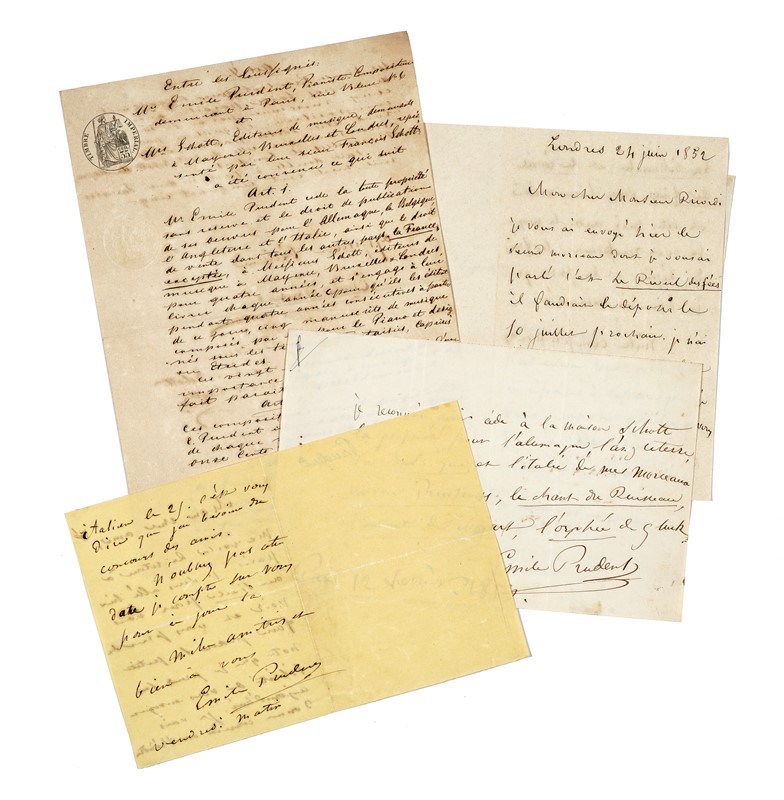 Entre les Soussignés,
Mr Emile Prudent, Pianiste Compositeur
demeurant à Paris, rue Bleue No 6
et
Mrs Schott, Editeurs de musique, demeurants
à Mayence, Bruxelles et Londres, repré-
senté par leur sieur François Schott
a été convenu ce qui suit
Art. 1.
Mr Emile Prudent cède la toute propriété
sans reserve et le droit de publication
de ses oeuvres pour l'Allemagne, la Belgique,
l'Angleterre et l'Italie, ainsi que le droit
de vente dans tous les autres pays, la France
exceptée, à Messieurs Schott, éditeurs de
musique à Mayence, Bruxelles et Londres
pour quatre années, et s'engage à leur
livrer chaque année
pendant quatre années consécutives à partir
de ce jour, cinq manuscrits de musique
composés par pour le Piano et desig-
nés sous les taisies, Caprices
ou Etudes.
Ces vingt
importance
fait parai
Art
Ces composit
E. Prudent
de chaque
onze Cents
TIMBRE IMPERIAL
Londres 24 juin 1852
Mon cher Monsieur Ricordi
je vous ai envoyé hier le
second morceau dont je vous ai
parlé c'est Le Réveil des fées
il faudrait le déposer le
10 juillet prochain. je n'ai
je reconn cédé à la maison Schott
l'allemagne, l'angleterre,
et l'italie de mes morceaux
le chant du Ruisseau,
l'orphée de gluck.
Emile Prudent
italien le 25. c'est vous
dire que j'ai besoin du
concours des amis.
N'oubliez pas cette
date je compte sur vous
pour ce jour là
Mille amitiés et
bien à vous
Emile Prudent
vendredi matin